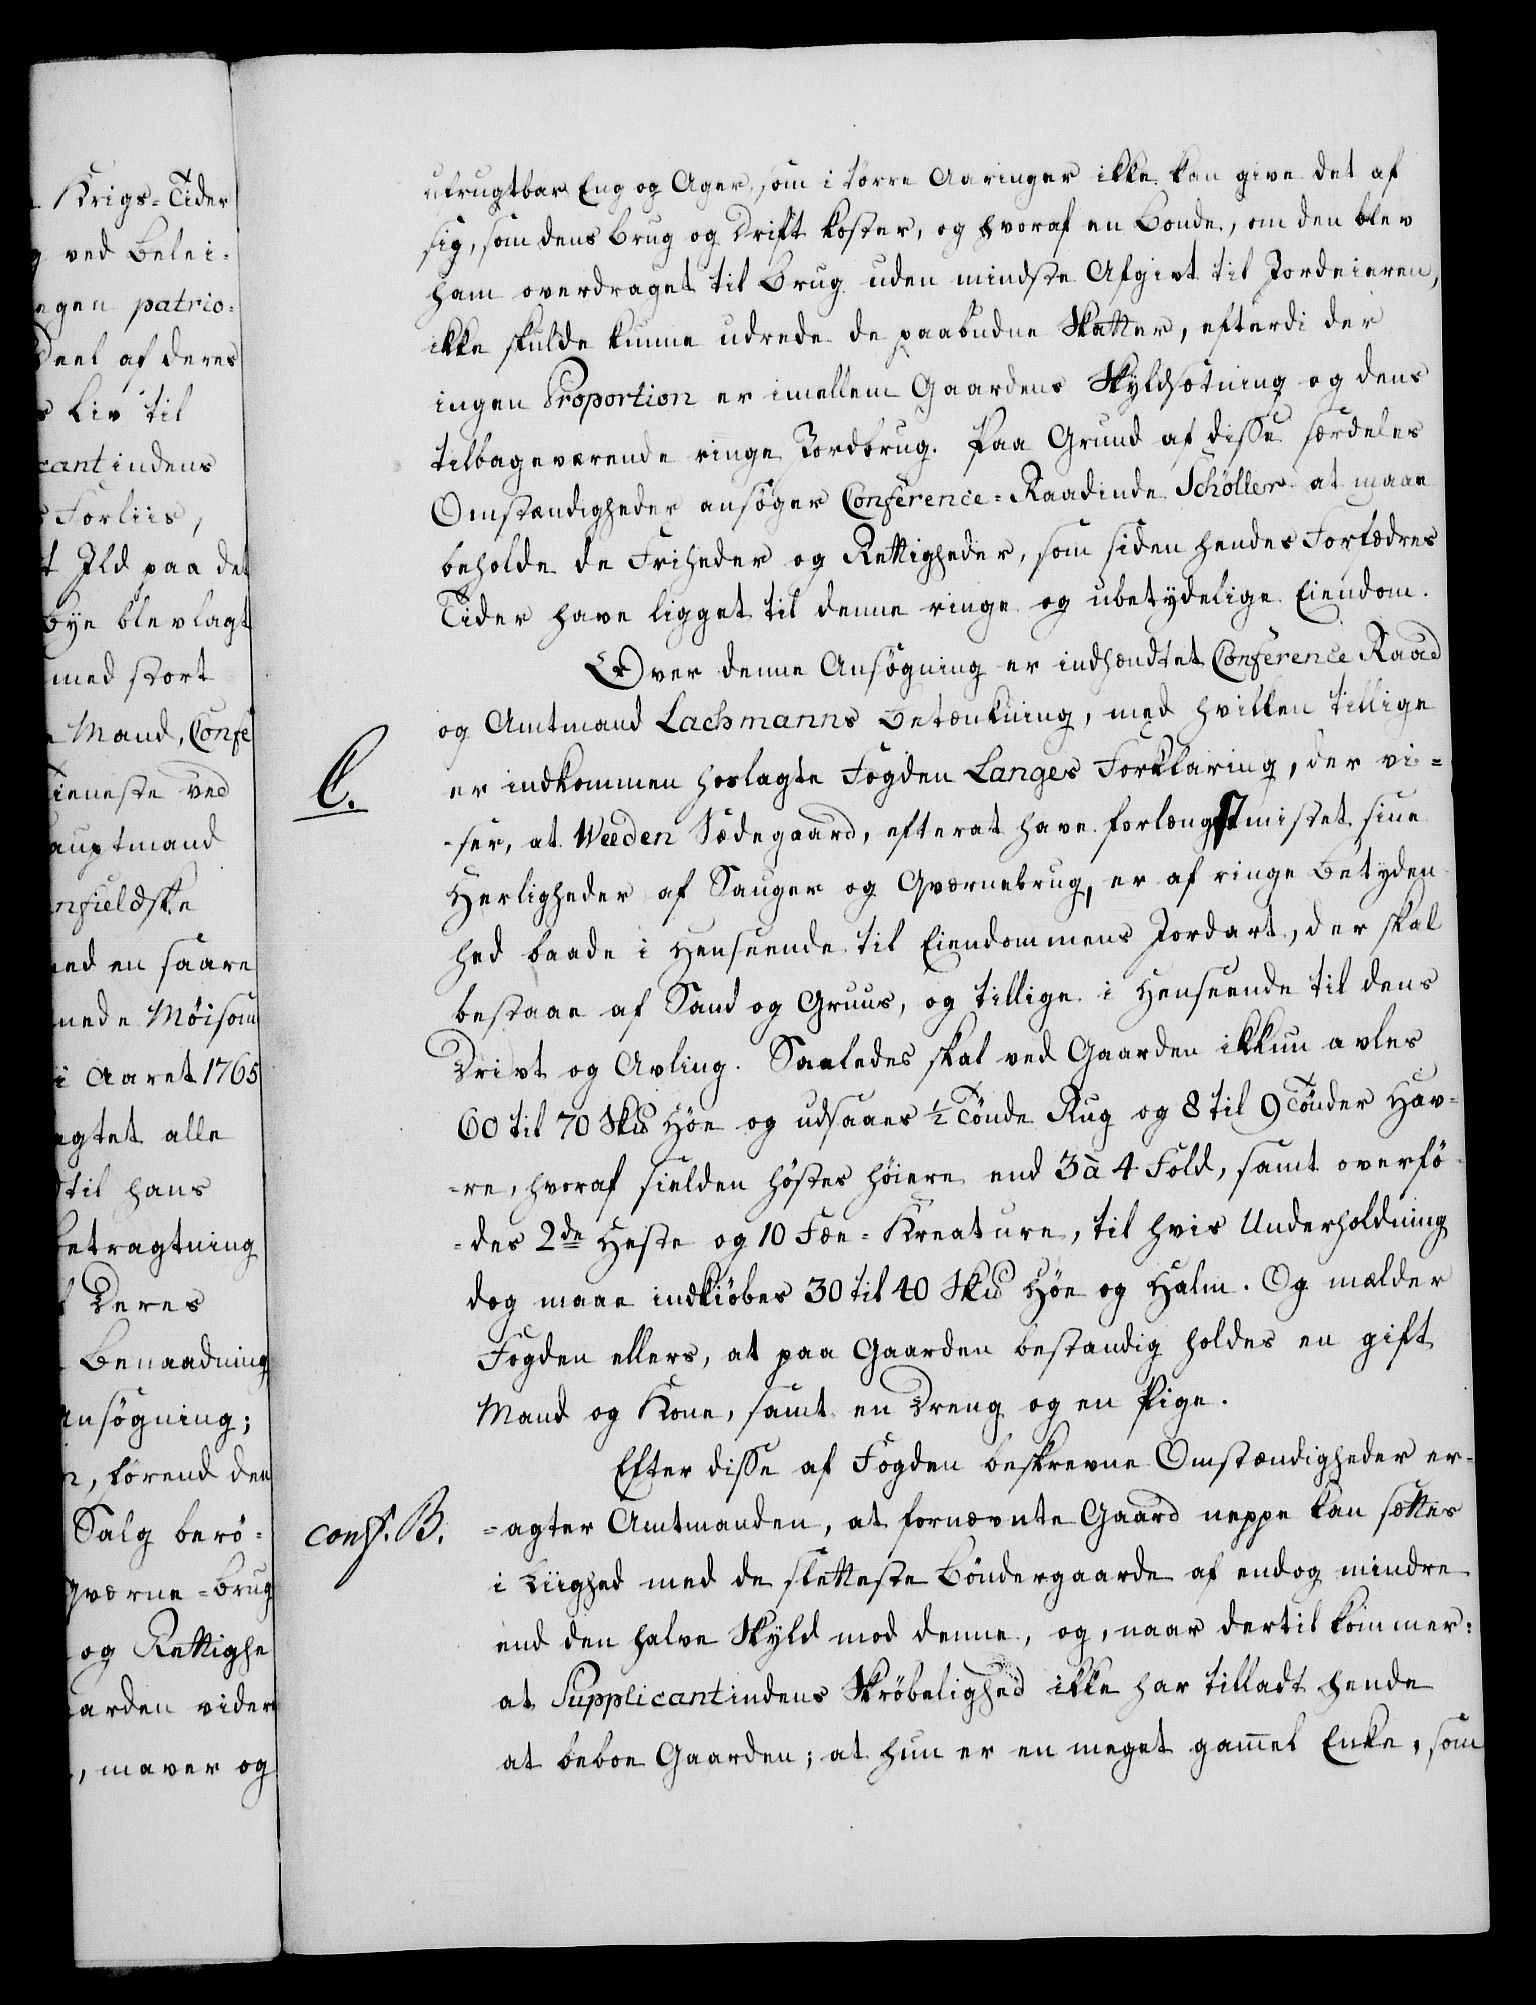 Krigs=Tider
ved Belei=
egen patrio=
Deel af deres
s Liv til
cantindens
s Forliis,
t Ild paa det
Bye blev lagt
med stort
Mand, Confe
tieneste ved
Hauptmand
nfieldske
med en saare
mede Möisom
i Aaret 1765
agtet alle
til hans
Betragtning
Deres
Benaadning
Ansögning;
n, förend den
Salg berö=
Qværne=brug
og Rettighe
aarden videre
, maver og
ufrugtbar Eng og Ager, som i törre Aaringer ikke kan give det af
sig, som dens Brug og Drift koster, og hvoraf en Bonde, om den blev
ham overdraget til Brug uden mindste Afgivt til Jordeieren,
ikke skulde kunne udrede de paabudne Skatter, efterdi der
ingen Proportion er imellem Gaardens Skyldsætning og dens
tilbageværende ringe Jordbrug. Paa Grund af disse særdeles
Omstændigheder ansöger Conference=Raadinde Schöller at maae
beholde de Friheder og Rettigheder, som siden hendes Forfædres
Tider have ligget til denne ringe og ubetydelige Eiendom.
Over denne Ansögning er indhændtet Conference Raad
og Amtmand Lachmanns Betænkning, med hvilken tillige
C.
er indkommen hoslagte Fogden Langes Forklaring, der vi=
=ser, at Weeden Sædegaard, efterat have forlængst mistet sine
Herligheder af Sauger og Qværnebrug, er af ringe Betyden
hed baade i Henseende til Eiendommens Jordart, der skal
bestaae af Sand og Gruus, og tillige i Henseende til dens
Drivt og Avling. Saaledes skal ved Gaarden ikkun avles
60 til 70 Skd Höe og udsaaes ½ Tönde Rug og 8 til 9 Tönder Hav=
=re, hvoraf sielden höstes höiere end 3 à 4 Fold, samt overfö=
=des 2de Heste og 10 Fæe=Kreature, til hvis Underholdning
dog maae indkiöbes 30 til 40 Skd Höe og Halm. Og mælder
Fogden ellers, at paa Gaarden bestandig holdes en gift
Mand og Kone, samt en Dreng og en Pige.
Efter disse af Fogden beskrevne Omstændigheder er=
conf. B.
=agter Amtmanden, at fornævnte Gaard neppe kan sættes
i Liighed med de sletteste Böndergaarde af endog mindre
end den halve Skyld mod denne, og, naar dertil kommer:
at Supplicantindens Skröbelighed ikke har tilladt hende
at beboe Gaarden; at hun er en meget gam̄el Enke, som